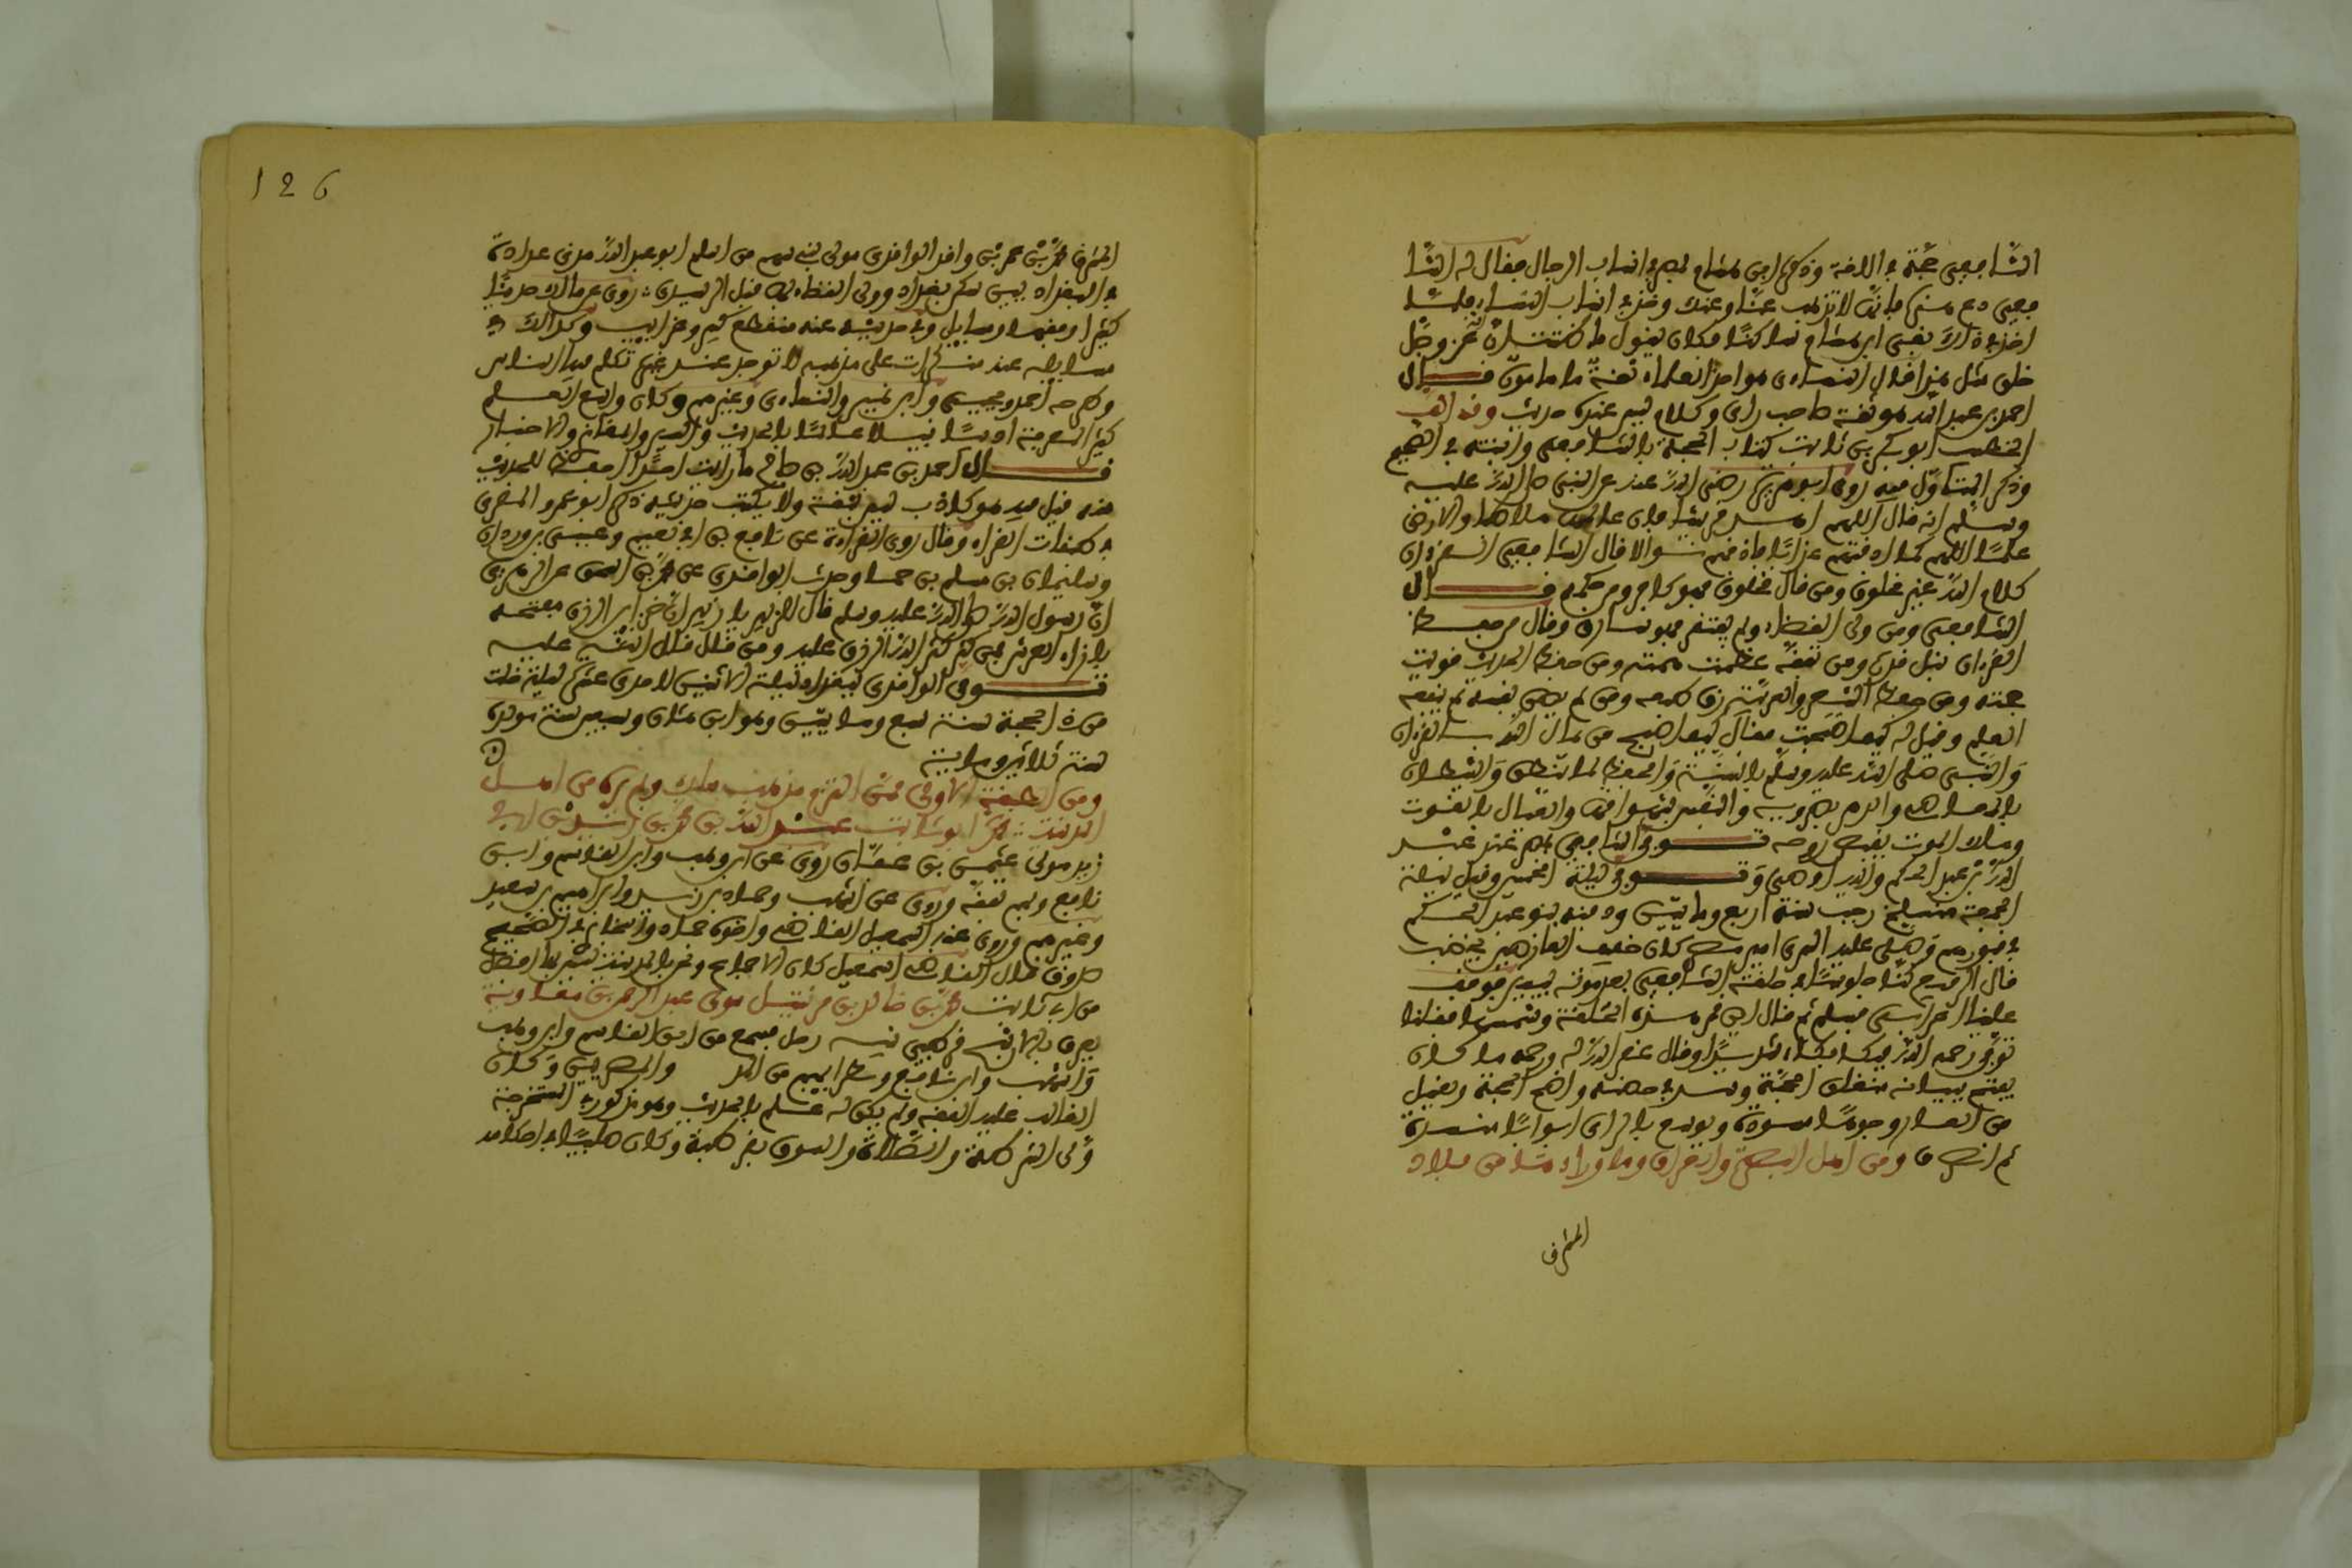 الشافعي حجة في اللغة وذكر ابن هشام بمصر في انساب الرجال فقال له الشا
فعي دع عنك فانها لا تذهب عنا وعنك وخذ في انساب النساء فلما
اخذ في ذلك بقي ابن هشام ساكتا فكان يقول ما ظننت ان الله عز وجل
خلق مثل هذا قال النسائي هو احد العلماء ثقة مامون قال
احمد بن عبد الله هو ثقة صاحب راي وكلام ليس عنده حديث وقد الف
الخطيب ابو بكر بن ثابت كتاب الحجة بالشافعي واثبته في الصحيح
وذكر البت اول فيه روى ابو هريرة رضي الله عنه عن النبي صلى الله عليه
وسلم انه قال اللهم اهد قريشا فان عالمها يملا طباق الارض
علما اللهم كما اذقتهم عذابا فاذقهم نوالا قال الشافعي القرءان
كلام الله غير مخلوق ومن قال مخلوق فهو كافر ومن حكمه قال
الشافعي ومن ولى القضاء ولم يفتقر فهو سارق وقال من حفظ
القرءان نبل قدره ومن تفقه عظمت قيمته ومن حفظ الحديث قويت
حجته ومن حفظ الشعر والعربية رق طبعه ومن لم يصن نفسه لم ينفعه
العلم وقيل له كيف اصبحت فقال كيف اصبح من يطالبه الله بالقرءان
والنبي صلى الله عليه وسلم بالسنة والحفظة لما ينطق والشيطان
بالمعاصي والدهر بصروفه والنفس بشهواتها والعيال بالقوت
وملك الموت بقبض روحه توفي الشافعي بمصر عند عبد
الله بن عبد الحكم واليه اوصى وتوفي ليلة الخميس وقيل ليلة
الجمعة منسلخ رجب سنة اربع ومايتين ودفنه بنو عبد الحكم
في قبورهم وصلى عليه السري امير مصر كان خفيف العارضين يخضب
قال الربيع كنا جلوسا في حلقة الشافعي بعد موته بيسير فوقف
علينا اعرابي فسلم ثم قال اين قمر هذه الحلقة وشمسها فقلنا
توفي رحمه الله فبكا بكاء شديدا وقال غفر الله له ورحمه ما كان
يفتح ببيانه منغلق الحجة ويسد في خصمه واضح المحجة ويغسل
من العار وجوها مسودة ويوسع بالراي ابوابا منسدة
ثم انصرف ومن اهل البصرة والعراق وما وراءها من بلاد
المشرق
126
المشرق محمد بن عمر بن واقد الواقدي مولى بني سهم من اسلم ابو عبد الله مدني عداده
في البغداديين سكن بغداد وولي القضاء بها قبل الرشيد روى عن مالك حديثا
كثيرا وفقها ومسايل وفي حديثه عنه منقطع كثير وغرايب وكذلك في
مسايله عنه منكرات على مذهبه لا توجد عند غيره تكلم فيه الناس
وطرحه احمد ويحيى وابن نمير والنسائي وغيرهم وكان واسع العلم
كثير المعرفة اديبا نبيلا عالما بالحديث والسير والمغازي والاخبار
قال احمد بن عبد الله بن صالح ما رايت احدا احفظ للحديث
منه قيل فيه هو كذاب ليس بثقة ولا يكتب حديثه ذكره ابو عمرو المقري
في طبقات القراء وقال روى القراءة عن نافع بن ابي نعيم وعيسى بن وردان
وسليمان بن مسلم بن جماز وحدث الواقدي عن محمد بن اسحق عن الزهري
ان رسول الله صلى الله عليه وسلم قال للزبير يا زبير ان خزاين الرزق مفتحة
بازاء العرش فمن كثر كثر الله الرزق عليه ومن قلل قلل الله عليه
توفي الواقدي ببغداد ليلة الاثنين لاحدى عشرة ليلة خلت
من ذي الحجة سنة سبع ومايتين وهو ابن ثمان وسبعين سنة مولده
سنة ثلاثين ومايية
ومن الطبقة الاولى ممن التزم مذهب مالك ولم يره من اهل
المدينة محمد ابو ثابت عبيد الله بن محمد بن
زيد مولى عثمن بن عفان روى عن ابن وهب وابن القاسم وابن
نافع وبهم تفقه وروى عن اشهب وحماد بن زيد وابراهيم بن سعيد
وغيرهم وروى عنه اسمعيل القاضي واخوه حماد والبخاري في الصحيح
صدوق قال القاضي اسمعيل كان الاجماع ونحن بالمدينة ليس بها افضل
من ابي ثابت محمد بن خالد بن مرتنيل مولى عبد الرحمن بن معاوية
يعرف بالاشج قرطبي نبيه رحل فسمع من ابن القاسم وابن وهب
واشهب وابن نافع ونظرايهم من المد والمصريين وكان
الغالب عليه الفقه ولم يكن له علم بالحديث وهو مذكور في المستخرجة
ولي الشرطة والصلاة والسوق بقرطبة وكان صليبا في احكامه